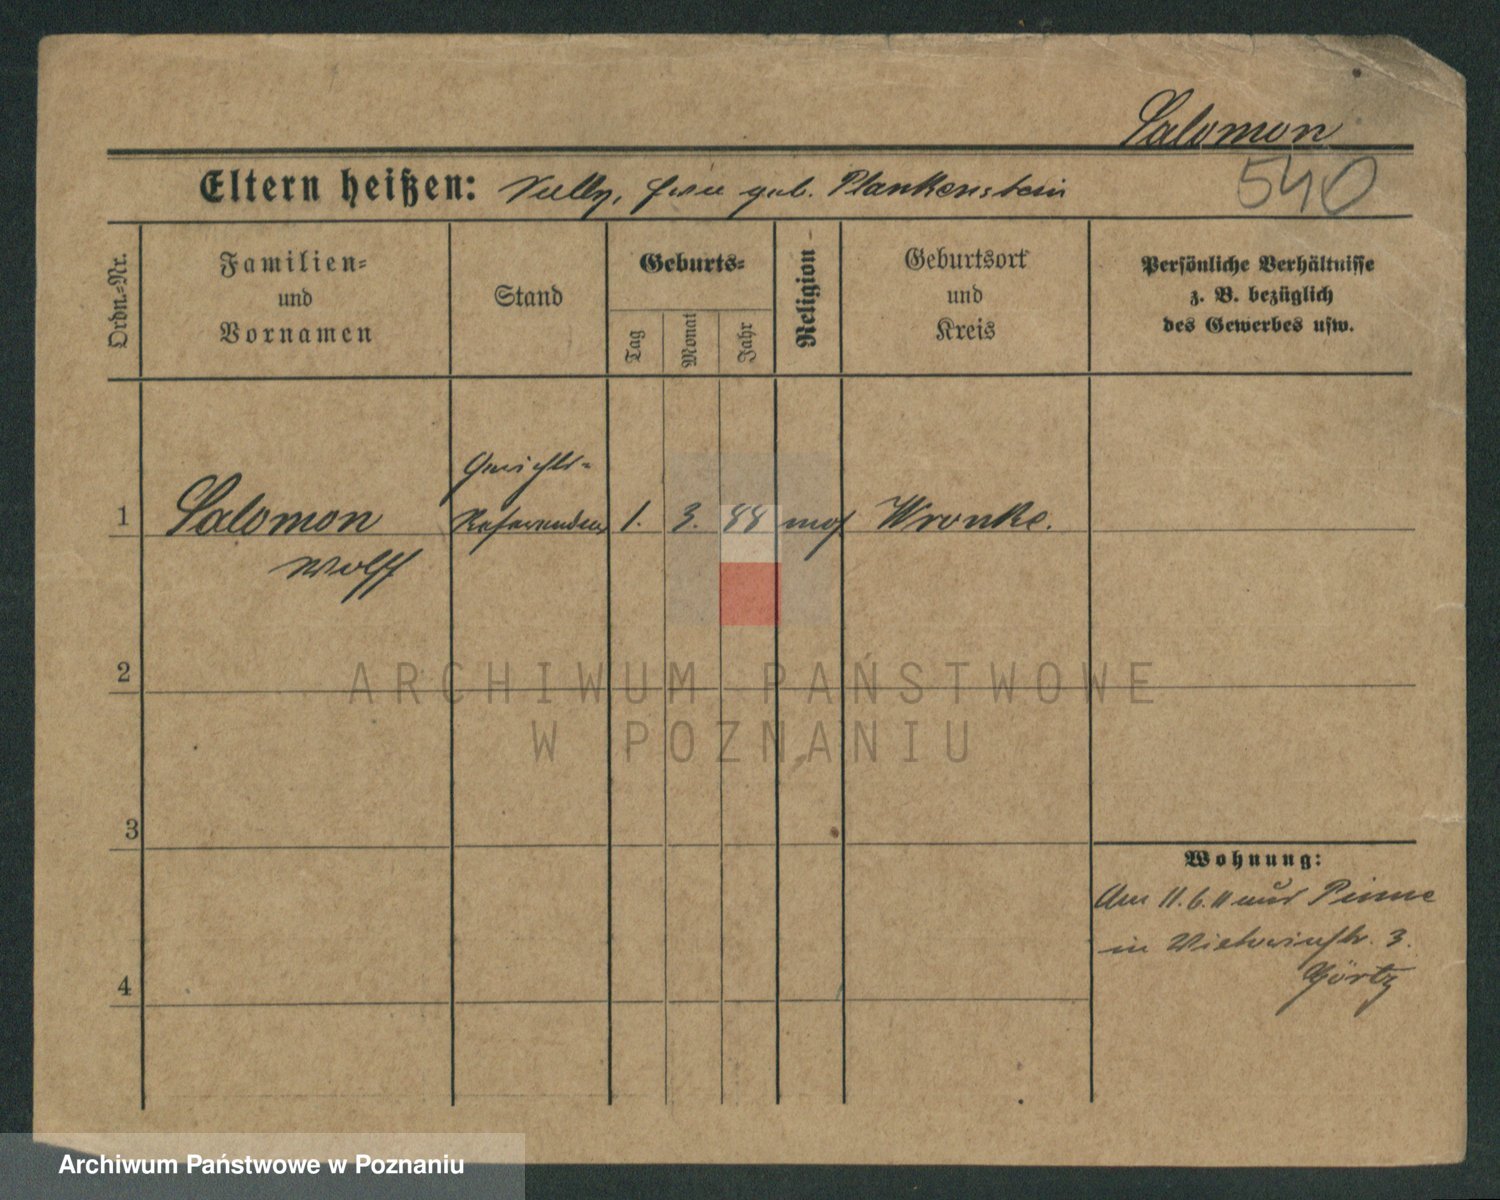 Salomon
540
Eltern heißen: geb. Plankenstein
Ordn.-Nr.
Familien-
und
Vornamen
Stand
Geburts-
Tag
Monat
Jahr
Religion
Geburtsort
und
Kreis
Persönliche Verhältnisse
z. B. bezüglich
des Gewerbes usw.
Gerichts-
1 Salomon Referendar 1. 3. 88 mos Wronke.
Wolff
2
ARCHIWUM PAŃSTWOWE
W POZNANIU
3
Wohnung:
Am 11.6.11 aus Pinne
in 3.
Görtz
4
Archiwum Państwowe w Poznaniu